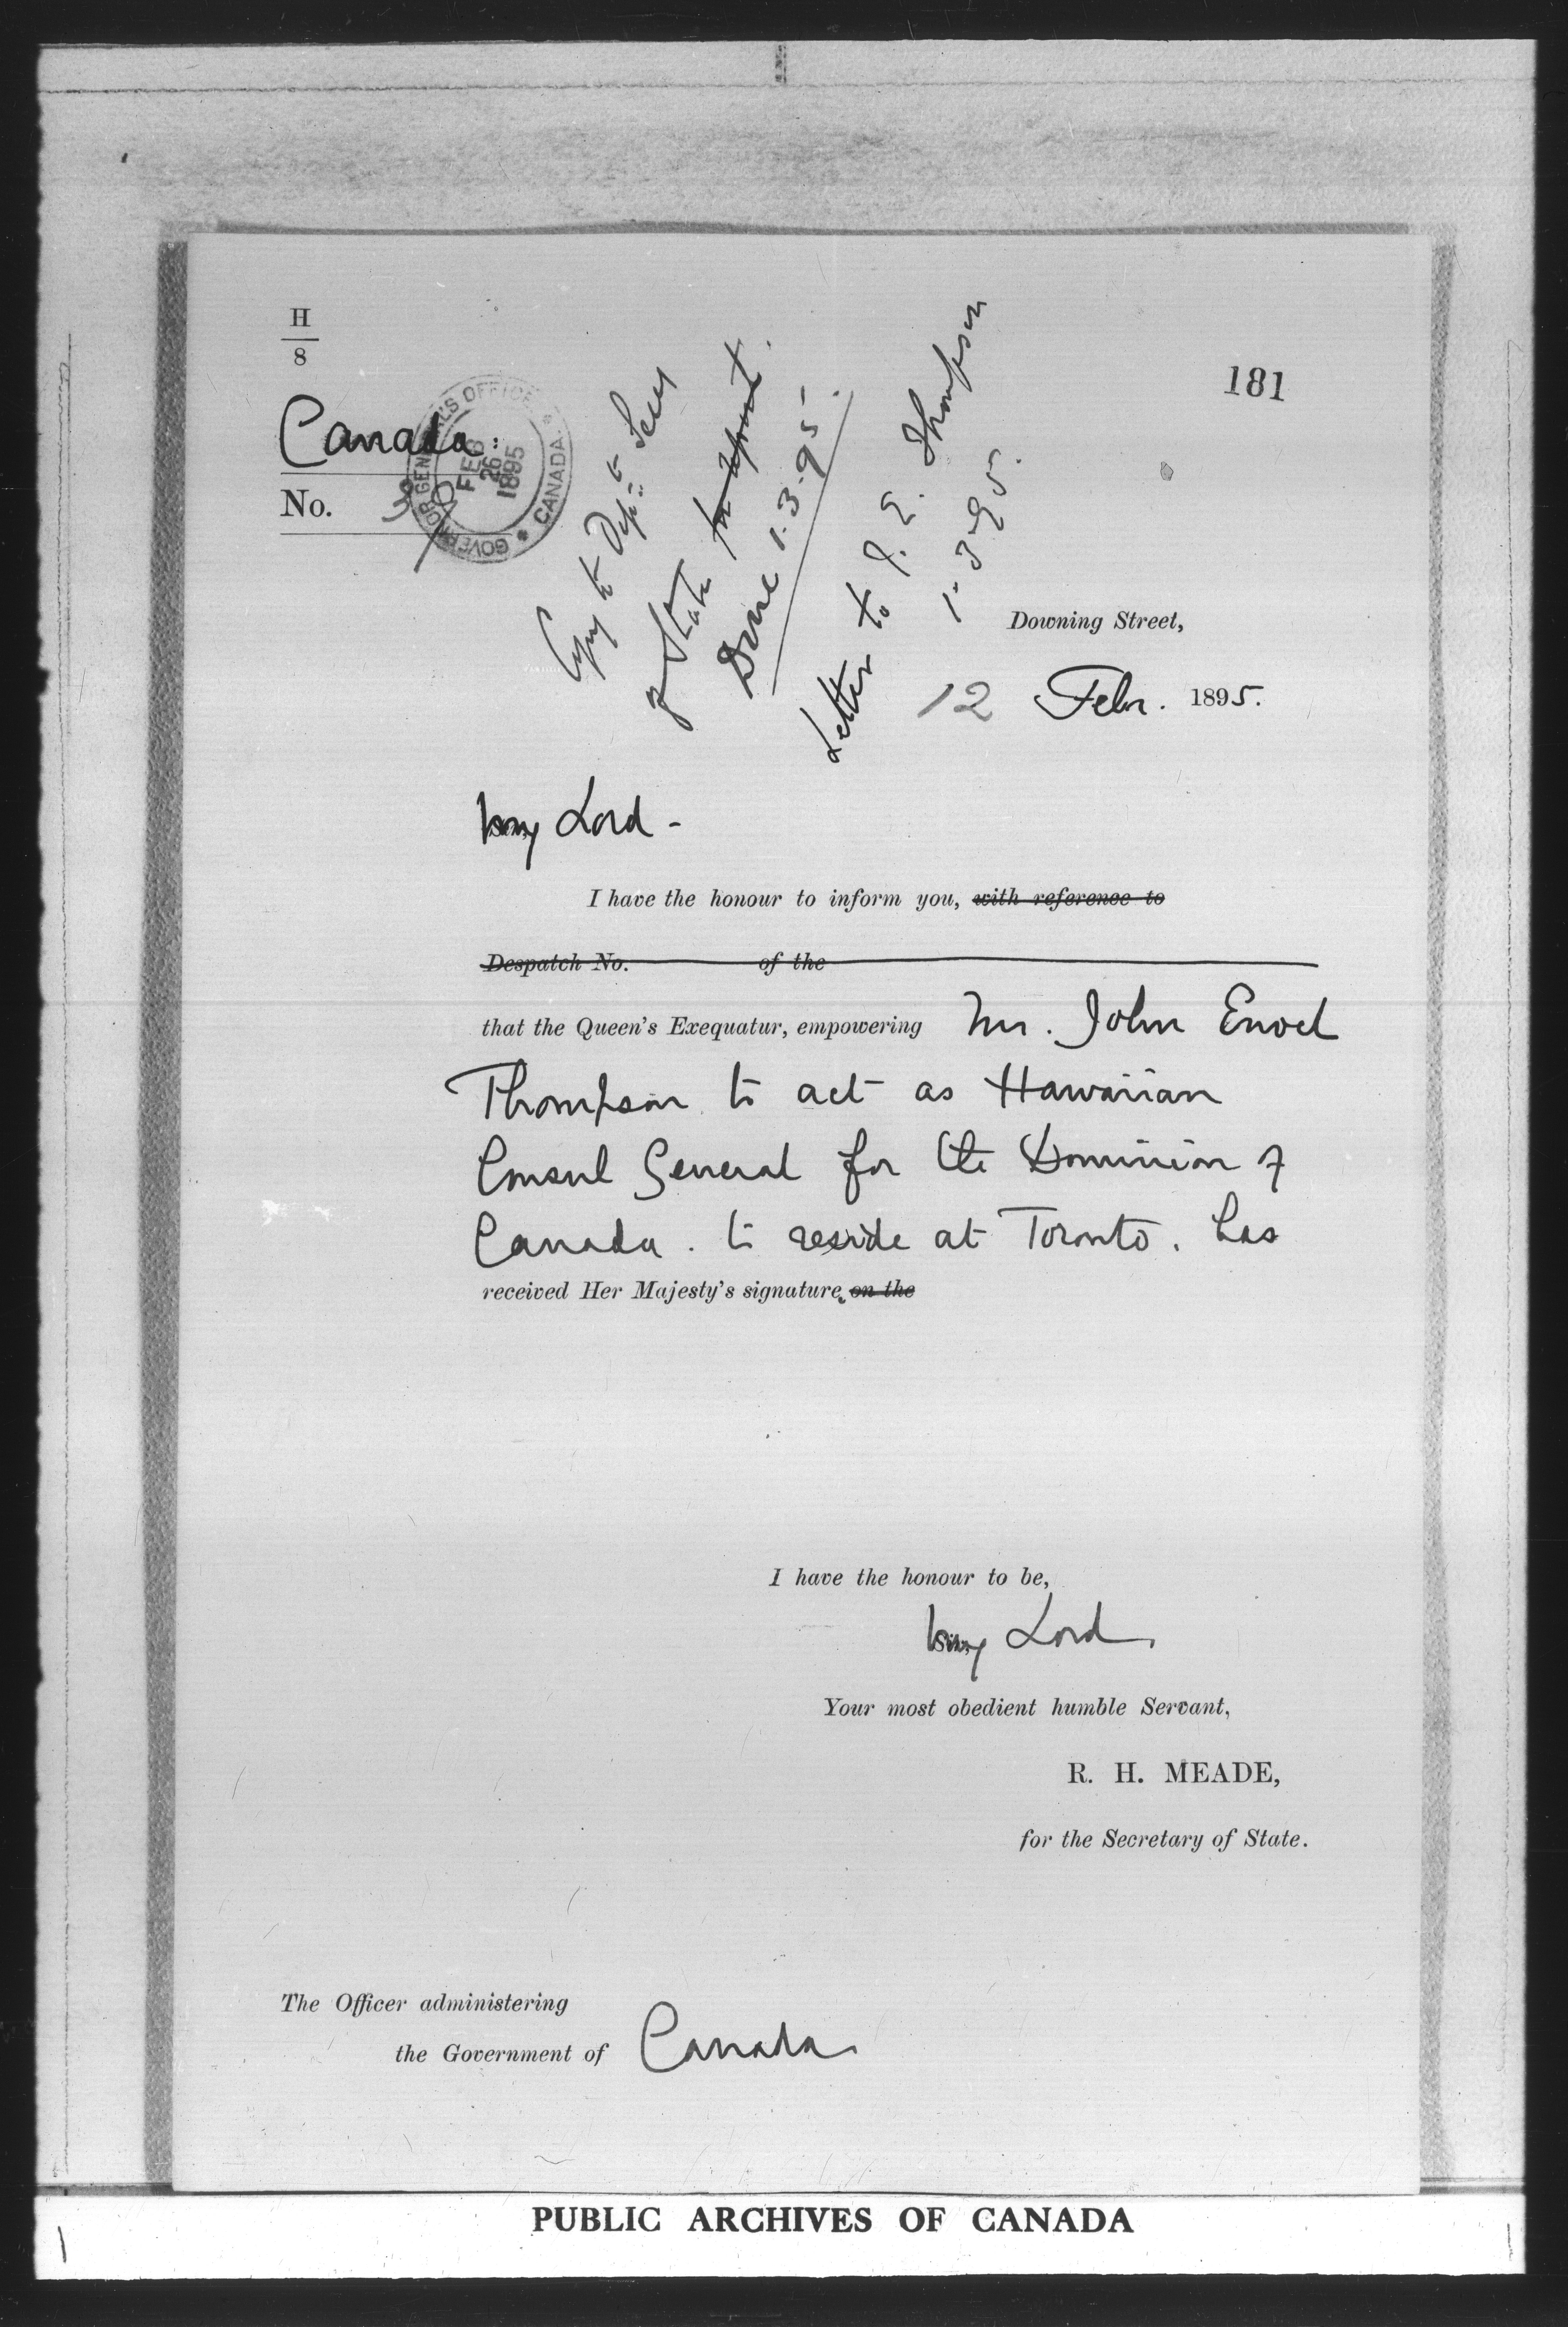 H
8
181
Canada:
No. 38
GOVERNOR GENERAL'S OFFICE * CANADA *
FEB
26
1895
Copy to Dep: to Secy
of State
Done 1.3.95.
Letter to J. E. Thompson
1.3.95.
Downing Street,
12 Febr. 1895.
My Lord -
I have the honour to inform you, with reference to
Despatch No. of the
that the Queen's Exequatur, empowering Mr. John Enoch
Thompson to act as Hawaiian
Consul General for the Dominion of
Canada. to reside at Toronto. has
received Her Majesty's signature. on the
I have the honour to be,
My Lord,
Your most obedient humble Servant,
R. H. MEADE,
for the Secretary of State.
The Officer administering
the Government of Canada
PUBLIC ARCHIVES OF CANADA